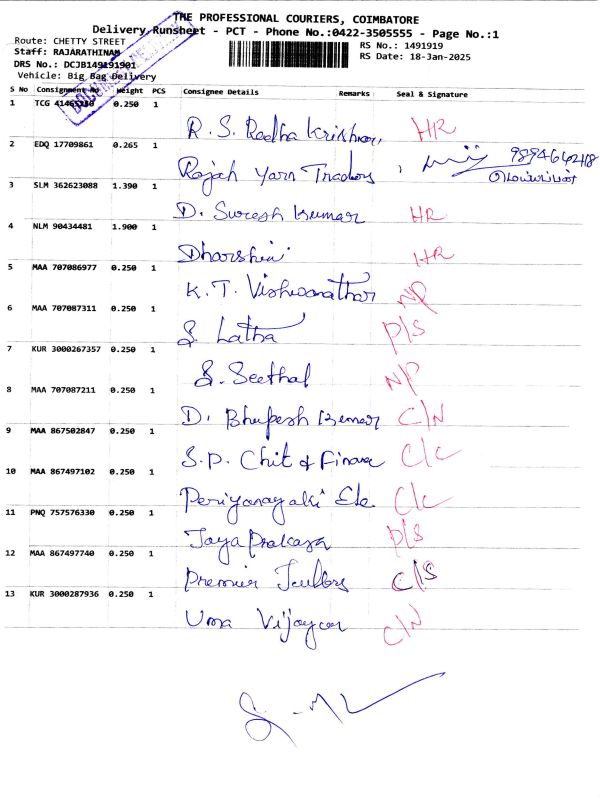 THE PROFESSIONAL COURIERS, COIMBATORE
Delivery Runsheet - PCT - Phone No.:0422-3505555 - Page No.:1
Route: CHETTY STREET
RS No.: 1491919
Staff: RAJARATHINAM
RS Date: 18-Jan-2025
DRS No.: DCJB149191901
Vehicle: Big Bag Delivery
S No Consignment No Weight PCS Consignee Details Remarks Seal & Signature
1 TCG 0.250 1 R. S. Radha Krishnan, HR
2 EDQ 17709861 0.265 1 Rajah Yarn Traders, 9894642418
3 SLM 362623088 1.390 1 D. Suresh Kumar HR
4 NLM 90434481 1.900 1 Dharshini HR
5 MAA 707086977 0.250 1 K. T. Vishwanathan N/P
6 MAA 707087311 0.250 1 S. Latha P/S
7 KUR 3000267357 0.250 1 S. Seethal N/P
8 MAA 707087211 0.250 1 D. Bhupesh Kumar C/N
9 MAA 867502847 0.250 1 S.P. Chit & Finance C/C
10 MAA 867497102 0.250 1 Periyanayaki Ele C/C
11 PNQ 757576330 0.250 1 Jayaprakash P/S
12 MAA 867497740 0.250 1 Premier C/S
13 KUR 3000287936 0.250 1 Uma C/N